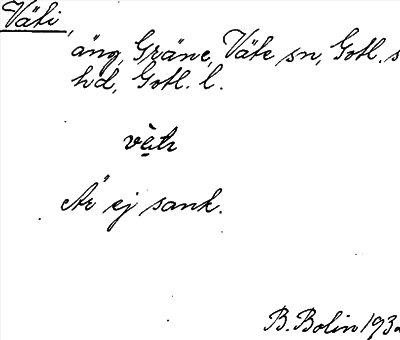 Väti,
äng, Gräne, Väte sn, Gotl. s
hd, Gotl. l.
Är ej sank.
B. Bolin 193